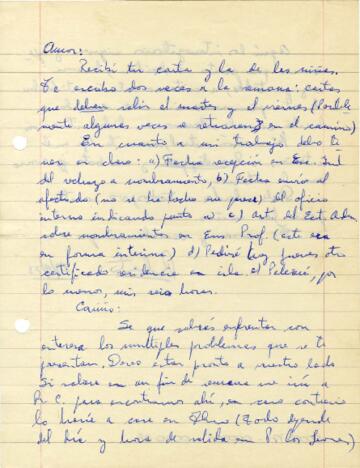 Amor:
Recibí tu carta y la de las niñas.
Te escribo dos veces a la semana: cartas
que deben salir el martes y el viernes (Posible
mente algunas veces se retrasen en el camino)
En cuanto a mi trabajo debo te
ner en claro: a) Fecha recepción en Esc. Ind
del rechazo a nombramiento, b) Fecha envío al
afectado (no se ha hecho me parece) del oficio
interno indicando punto a c) art. del Est. Adm.
sobre nombramiento en Ens. Prof. (este era
en forma interina) d) Pediré hoy jueves otro
certificado residencia en isla. el Peleco, por
lo menos, mis seis horas.
Cariño:
Se que sabrás enfrentar con
entereza los multiples problemas que se te
presentan. Deseo estar pronto a vuestro lado
Si saliera en un fin de semana me iría a
para encontrarnos ahí, en caso contrario
lo haría a casa en (todo depende
del día y hora de salida en P.